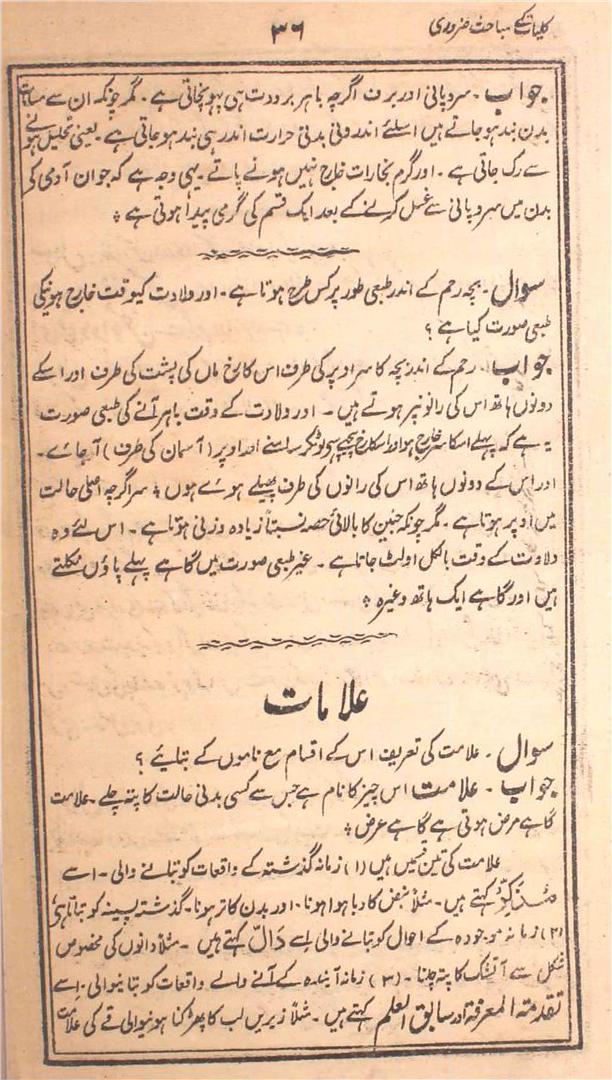 کلیات کے مباحث ضروری
۳۶
جواب۔ سرد پانی اور برف اگرچہ باہر برودت ہی پہونچاتی ہے۔ مگر چونکہ ان سے مسامات
بدن بند ہو جاتے ہیں اسلئے اندرونی بدنی حرارت اندر ہی بند ہو جاتی ہے۔ یعنی تحلیل ہونے
سے رک جاتی ہے۔ اور گرم بخارات خارج نہیں ہونے پاتے۔ یہی وجہ ہے کہ جوان آدمی کے
بدن میں سرد پانی سے غسل کرنے کے بعد ایک قسم کی گرمی پیدا ہوتی ہے ؞
سوال۔ بچہ رحم کے اندر طبعی طور پر کس طرح ہوتا ہے۔ اور ولادت کیوقت خارج ہونیکی
طبعی صورت کیا ہے ؟
جواب۔ رحم کے اندر بچہ کا سر اوپر کی طرف اس کا رخ ماں کی پشت کی طرف اور اسکے
دونوں ہاتھ اس کی رانونپر ہوتے ہیں۔ اور ولادت کے وقت باہر آنے کی طبعی صورت
یہ ہے کہ پہلے اسکا سر خارج ہو اور اسکا رخ پیچھے سے ہٹکر سامنے اور اوپر (آسمان کی طرف) آجائے۔
اور اس کے دونوں ہاتھ اس کی رانوں کی طرف پھیلے ہوئے ہوں ؞ سر اگرچہ اصلی حالت
میں اوپر ہوتا ہے۔ مگر چونکہ جنین کا بالائی حصہ نسبتاً زیادہ وزنی ہوتا ہے۔ اس لئے وہ
ولادت کے وقت بالکل اولٹ جاتا ہے۔ غیر طبعی صورت میں گاہے پہلے پاؤں نکلتے
ہیں اور گاہے ایک ہاتھ وغیرہ ؞
علامات
سوال۔ علامت کی تعریف اس کے اقسام مع ناموں کے بتایئے ؟
جواب۔ علامت اس چیز کا نام ہے جس سے کسی بدنی حالت کا پتہ چلے۔ علامت
گاہے مرض ہوتی ہے گاہے عرض ؞
علامت کی تین قسمیں ہیں (۱) زمانہ گذشتہ کے واقعات کو بتانے والی۔ اسے
مُذَکِّر کہتے ہیں۔ مثلاً نبض کا دبا ہوا ہونا۔ اور بدن کا تر ہونا۔ گذشتہ پسینہ کو بتاتا ہے
(۲) زمانہ موجودہ کے احوال کو بتانے والی اسے دَالّ کہتے ہیں۔ مثلاً دانوں کی مخصوص
شکل سے آتشک کا پتہ چلنا۔ (۳) زمانہ آیندہ کے آنے والے واقعات کو بتانیوالی۔ اسے
تقدمۃ المعرفۃ اور سابق العلم کہتے ہیں۔ مثلاً زیریں لب کا پھڑکنا ہونیوالی قے کی علامت